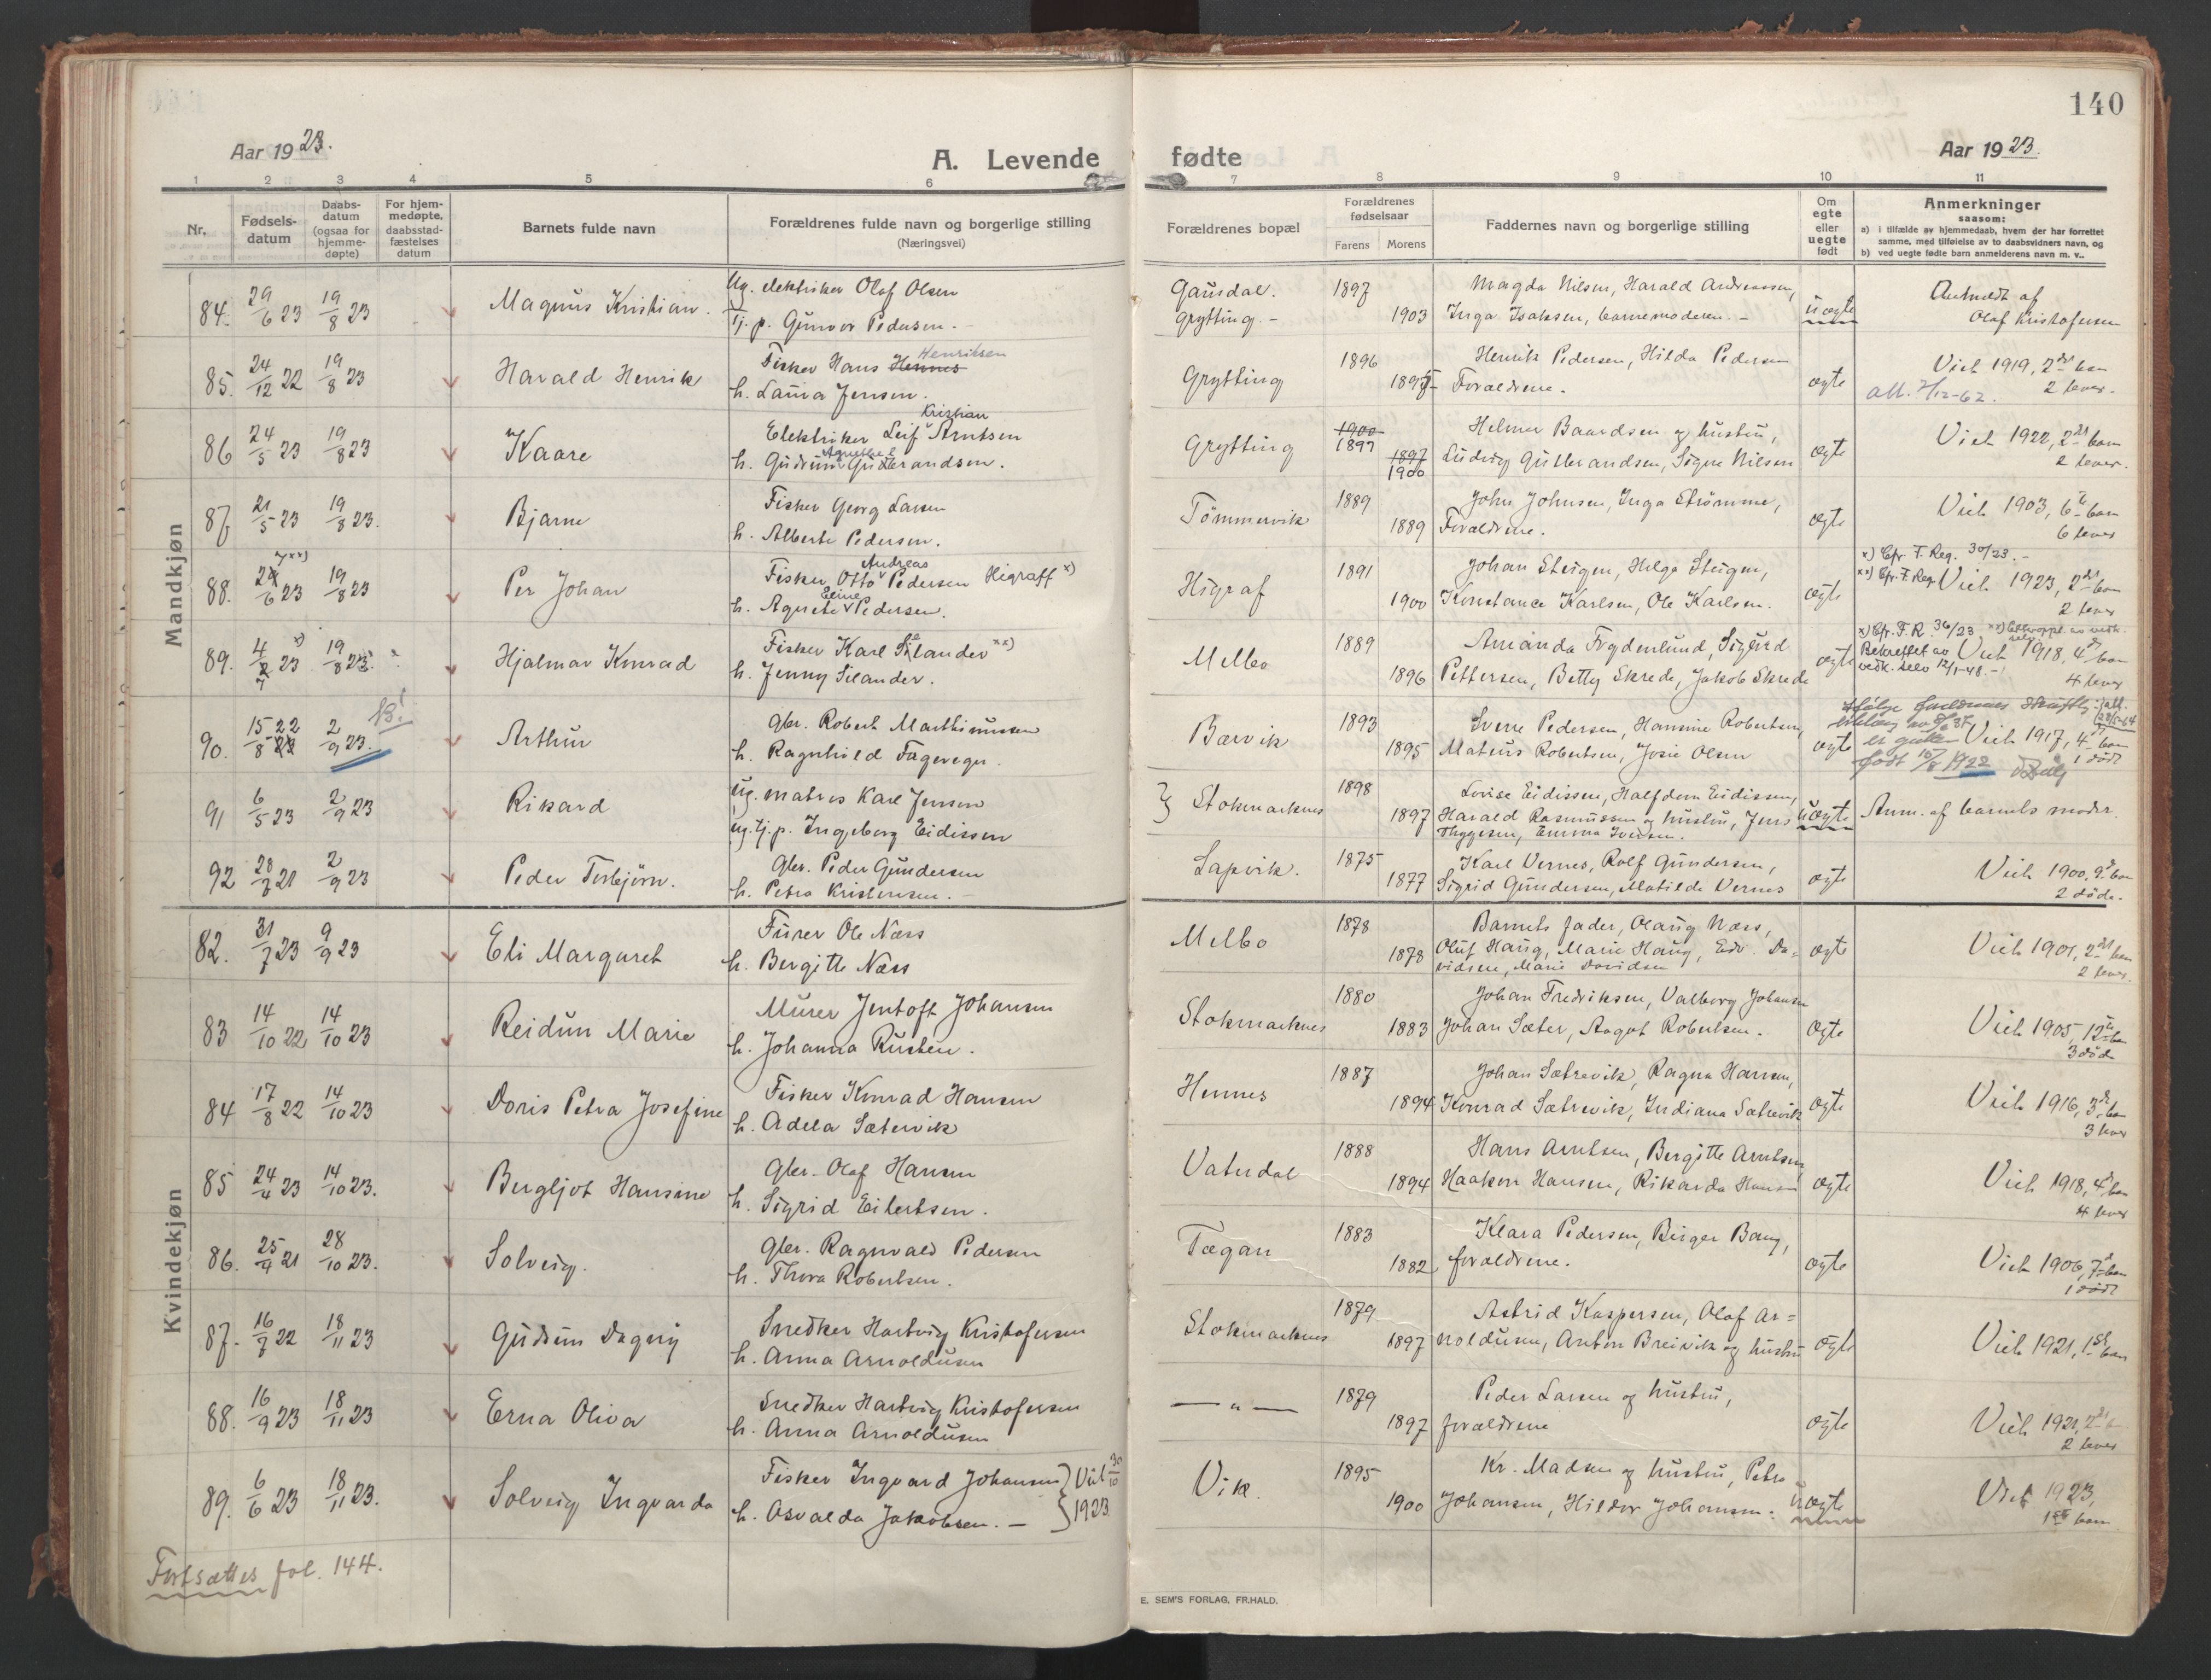 140
Aar 1923.
A. Levende fødte
Aar 1923.
1 2 3 4 5 6 7 8 9 10 11
Nr.
Fødsels-
datum
Daabs-
datum
(ogsaa for
hjemme-
døpte)
For hjem-
medøpte,
daabsstad-
fæstelses
datum
Barnets fulde navn
Forældrenes fulde navn og borgerlige stilling
(Næringsvei)
Forældrenes bopæl
Forældrenes
fødselsaar
Farens Morens
Faddernes navn og borgerlige stilling
Om
egte
eller
uegte
født
Anmerkninger
saasom:
a) i tilfælde av hjemmedaab, hvem der har forrettet
samme, med tilføielse av to daabsvidners navn, og
b) ved uegte fødte barn anmelderens navn m. v..
Mandkjøn
84. 29/6 23 19/8 23 Magnus Kristian. Ug. elektriker Olaf Olsen Gausdal. 1897 Magda Nilsen, Harald Andreassen, uegte Anmeldt af
Tj. p. Gunvor Pedersen. - Grytting. - 1903 Inga Isaksen, barnemoderen. - Olaf Kristofersen
85. 24/12 22 19/8 23 Harald Henrik Fisker Hans Hennes Henriksen Grytting 1896 Henrik Pedersen, Hilda Pedersen egte Viet 1919, 2det barn
h. Laura Jensen. 1895 Forældrene. att. 7/12-62. 2 lever.
86 24/5 23 19/8 23 Kaare Elektriker Leif Kristian Arntsen Grytting 1900 1897 Helmer Baardsen og hustru, egte Viet 1922, 2det barn
h. Gudrun Gulbrandsen. 1897 1900 Ludvig Gulbrandsen, Signe Nilsen 2 lever.
87 21/5 23 19/8 23. Bjarne Fisker Georg Larsen Tömmervik 1889 John Johnsen, Inga Strömme, egte Viet 1903, 6te barn
h. Alberte Pedersen. 1889 Forældrene. 6 lever
88. 6 23 xx) 19/8 23 Per Johan Fisker Otto Andreas Pedersen Higraff x) Higraf 1891 Johan Steigen, Helga Steigen, egte x) Cfr. F. Reg. 30/23. -
xx) Cfr. F. Reg. Viet 1923, 2det barn
h. Agnete Eline Pedersen. 1900 Konstance Karlsen, Ole Karlsen. 2 lever
89. 4/7 23 x) 19/8 23. Hjalmar Konrad Fisker Karl Silander xx) Melbo 1889 Amanda Frydenlund, Sigurd egte x) Cfr. F. R. 36/23
Bekræftet av Viet 1918, 4de barn
h. Jenny Silander. 1896 Pettersen, Betty Skrede, Jakob Skrede vedk. selv 12/1-48. - 4 lever
90. 15/8 22 2/9 23. NB! Arthur gbr. Robert Marthinussen Barvik 1893 Sverre Pedersen, Hansine Robertsen, egte Viet 1917, 4de barn
h. Ragnhild Fagereng. 1895 Mateus Robertsen, Josie Olsen 1 död
født 15/8 1922
91 6/5 23 2/9 23 Rikard ug. matros Karl Jensen Stokmarknes 1898 Lovise Eidissen, Halfdan Eidissen, uegte Anm. af barnets moder.
ug. tj. p. Ingeborg Eidissen 1897 Harald Rasmussen og hustru, Jens
Thygesen, Emma Iversen.
92 28/7 21 2/9 23 Peder Torbjörn. gbr. Peder Gundersen Lapvik. 1875 Karl Vernes, Rolf Gundersen, egte Viet 1900, 9de barn
h. Petra Kristensen. - 1877 Sigrid Gundersen, Matilde Vernes 2 döde.
Kvindekjøn
82. 31/7 23 9/9 23 Eli Margaret Furer Ole Næss Melbo 1878 Barnets fader, Olaug Næss, egte Viet 1901, 2det barn
h. Bergitte Næss 1878 Oluf Haug, Marie Haug, Edv. Da=
vidsen, Marie Davidsen 2 lever.
83 14/10 22 14/10 23 Reidun Marie Murer Jentoft Johansen Stokmarknes 1880 Johan Fredriksen, Valborg Johansen egte Viet 1905, 12te barn
h. Johanna Rusten. 1883 Johan Sæter, Aagot Robertsen. 3 död
84 17/8 22 14/10 23 Doris Petra Josefine Fisker Konrad Hansen Hennes 1887 Johan Sætrevik, Ragna Hansen, egte Viet 1916, 3de barn
h. Adela Sætervik 1894 Konrad Sætrevik, Indiana Sætrevik 3 lever
85 24/4 23 14/10 23. Bergljot Hansine gbr. Olaf Hansen Vatndal 1888 Hans Arntsen, Bergitte Arntsen, egte Viet 1918, 4de barn
h. Sigrid Eilertsen. 1894 Haakon Hansen, Rikarda Hansen 4 lever
86. 25/9 21 28/10 23. Solveig. gbr. Ragnvald Pedersen Tægan 1883 Klara Pedersen, Birger Bang, egte Viet 1906, 7de barn
h. Thora Robertsen. 1882 forældrene. 1 död
87. 16/7 22 18/11 23 Gudrun Dagny Snedker Hartvig Kristofersen Stokmarknes 1879 Astrid Kaspersen, Olaf Ar= egte Viet 1921, 1ste barn
h. Anna Arnoldusen 1897 noldusen, Anton Breivik og hustru
88. 16/9 23 18/11 23 Erna Oliva Snedker Hartvig Kristofersen — " — 1879 Peder Larsen og hustru, egte Viet 1921, 2det
h. Anna Arnoldusen 1897 forældrene 2 lever
89. 6/6 23 18/11 23. Solveig Ingvarda Fisker Ingvard Johansen } Viet 30/10 Vik. 1895 Kr. Madsen og hustru, Petra uegte Viet 1923,
h. Asvalda Jakobsen. - } 1923 1900 Johansen, Hildor Johansen. 1ste barn
Fortsættes fol. 144.
E. SEM'S FORLAG, FR.HALD.